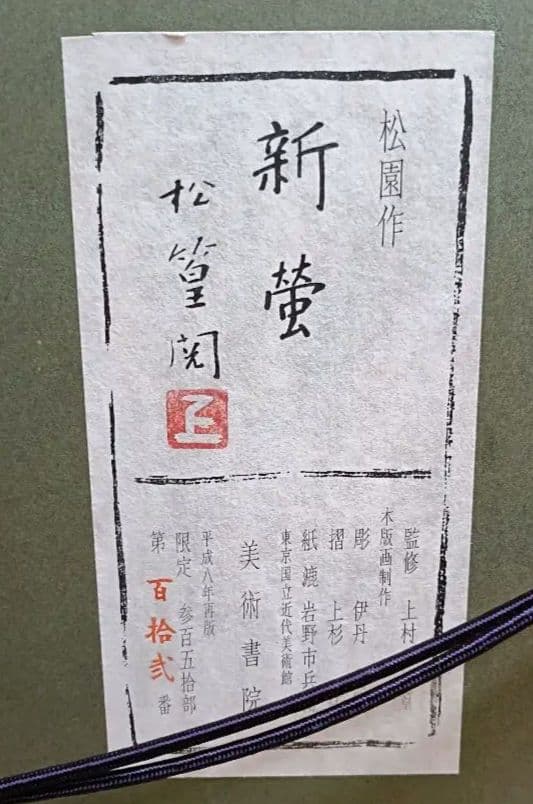 松園作
新螢
松篁閲
上
監修 上村
木版画制作
彫 伊丹
摺 上杉
紙漉 岩野市兵
東京国立近代美術館
美術書院
平成八年再版
限定 参百五拾部
第 百拾弐 番